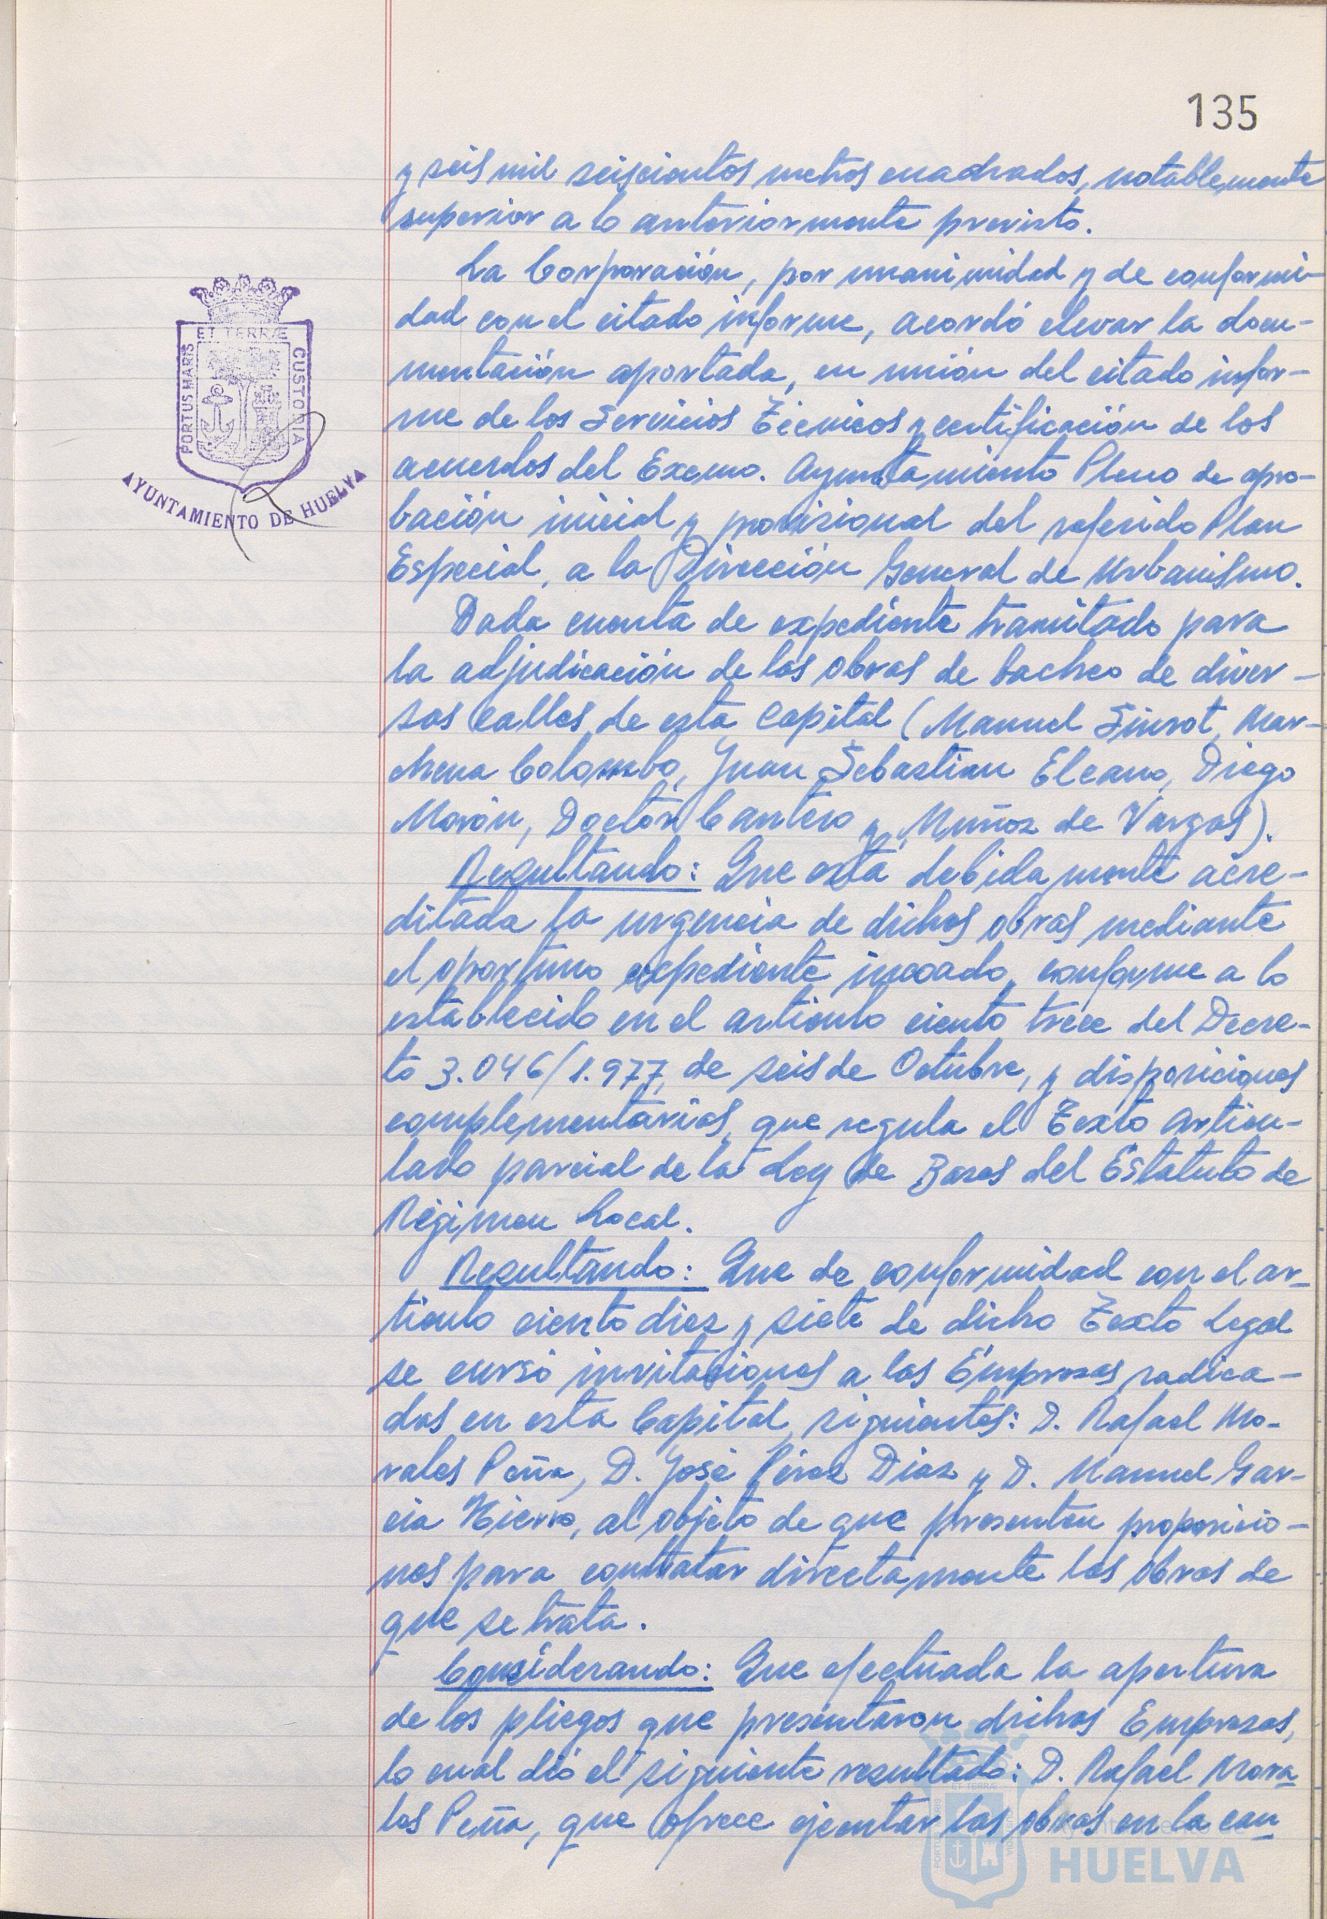 135
y seis mil seiscientos metros cuadrados, notablemente
superior a lo anteriormente previsto.
La Corporación, por unanimidad y de conformi-
dad con el citado informe, acordó elevar la docu-
mentación aportada, en unión del citado infor-
me de los Servicios Técnicos y certificación de los
acuerdos del Excmo. Ayuntamiento Pleno de apro-
bación inicial y provisional del referido Plan
Especial, a la Dirección General de Urbanismo.
Dada cuenta de expediente tramitado para
la adjudicación de las obras de bacheo de diver-
sas calles de esta Capital (Manuel Siurot, Mar-
chena Colombo, Juan Sebastian Elcano, Diego
Morón, Doctor Cantero y Muñoz de Vargas).
Resultando: Que está debidamente acre-
ditada la urgencia de dichas obras mediante
el oportuno expediente incoado, conforme a lo
establecido en el articulo ciento trece del Decre-
to 3.046/1.977, de seis de Octubre, y disposiciones
complementarias, que regula el Texto articu-
lado parcial de la Ley de Bases del Estatuto de
Régimen Local.
Resultando: Que de conformidad con el ar-
ticulo ciento diez y siete de dicho Texto Legal
se cursó invitaciones a las Empresas radica-
das en esta Capital, siguientes: D. Rafael Mo-
rales Peña, D. José Pérez Diaz y D. Manuel Gar-
cia Hierro, al objeto de que presenten proposicio-
nes para contratar directamente las obras de
que se trata.
Considerando: Que efectuada la apertura
de los pliegos que presentaron dichas Empresas,
lo cual dió el siguiente resultado: D. Rafael Mora-
les Peña, que ofrece ejecutar las obras en la can-
PORTUS MARIS ET TERRÆ CUSTODIA
AYUNTAMIENTO DE HUELVA
HUELVA